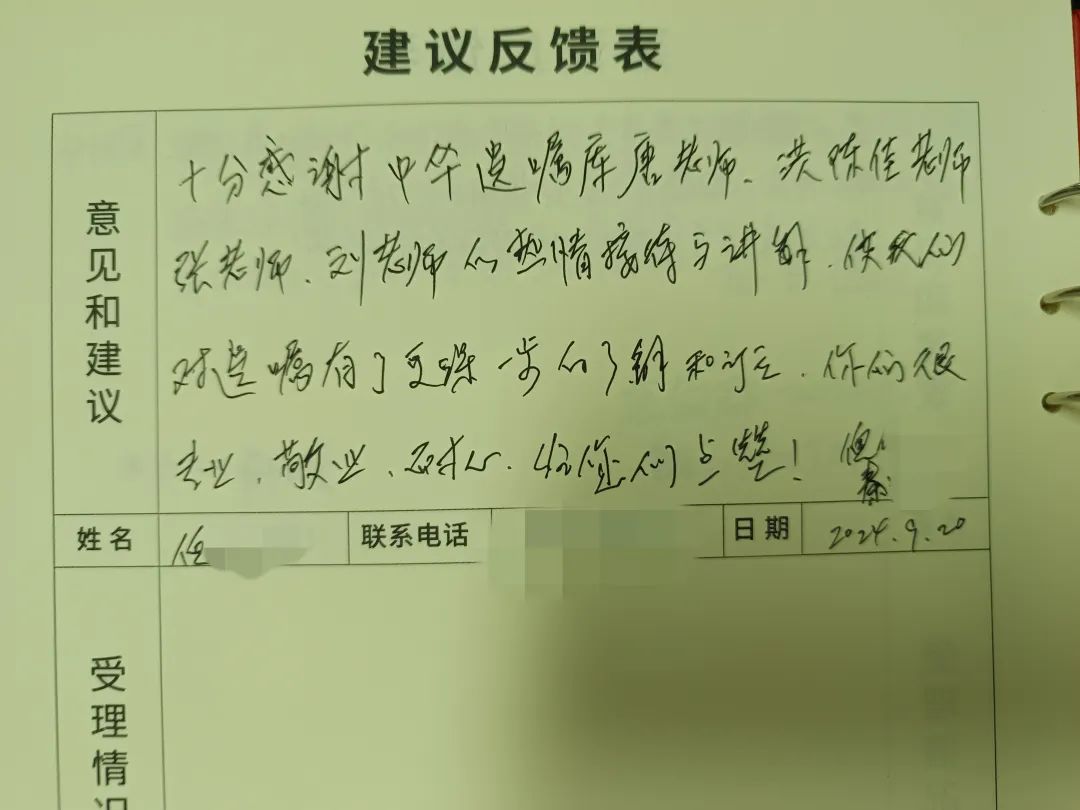 建议反馈表
意见和建议
十分感谢中华遗嘱库唐老师、洪陈佳老师
张老师、刘老师的热情接待与讲解，使我们
对遗嘱有了更深一步的了解和认识，你们很
专业、敬业、耐心，给您们点赞！
姓名
任
联系电话
日期
2024.9.20
受理情况